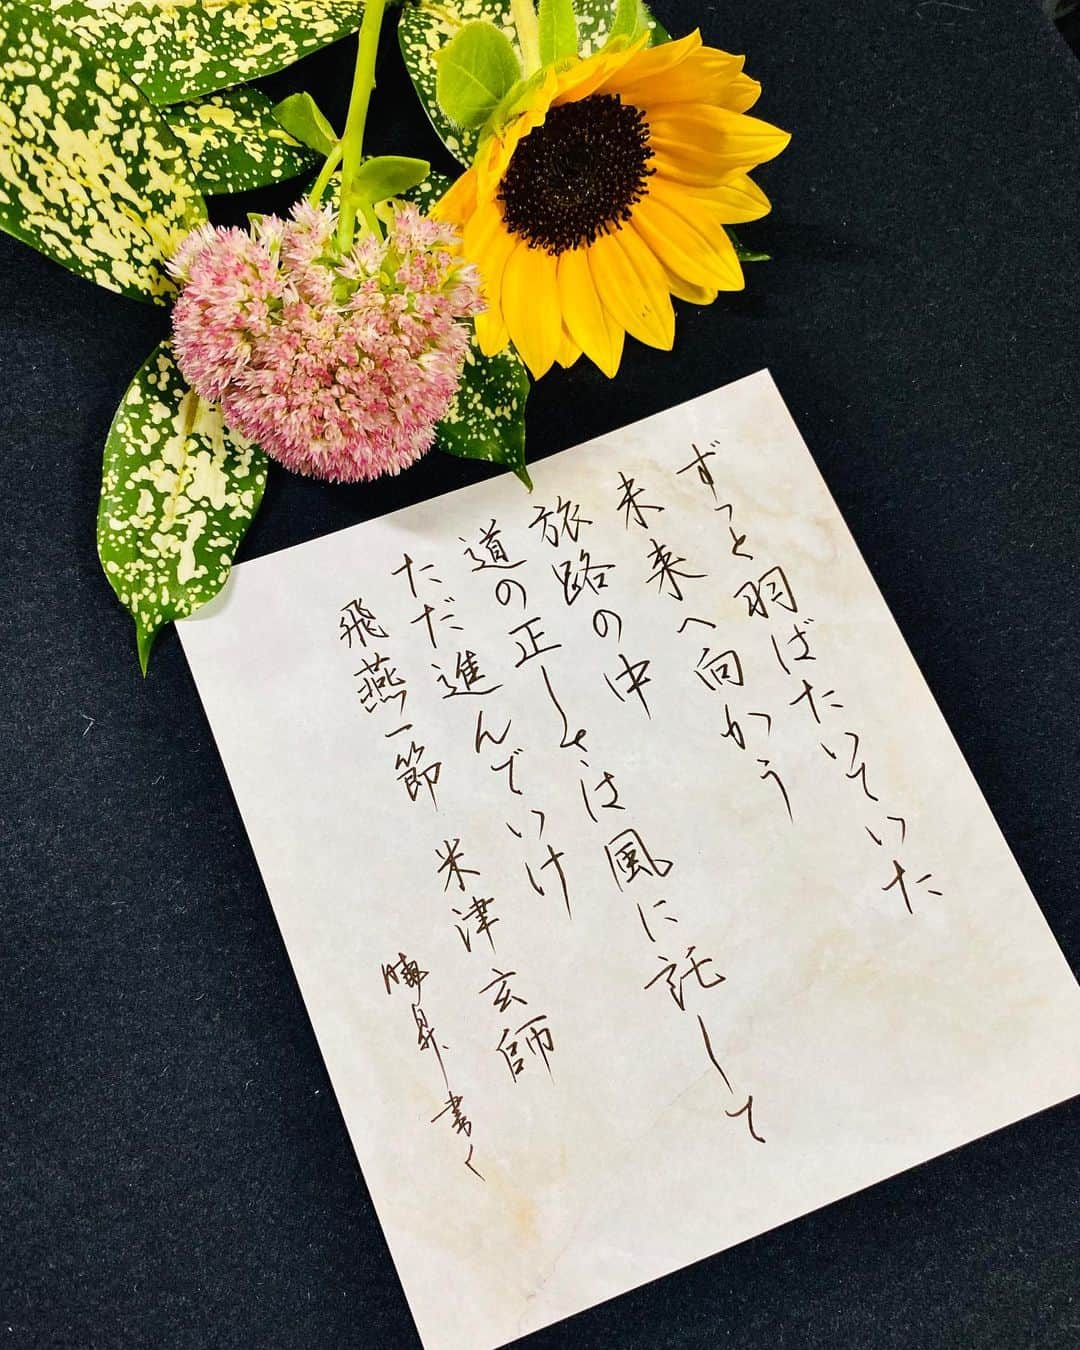 ずっと羽ばたいていた
未来へ向かう
旅路の中
道の正しさは風に託して
ただ進んでいけ
飛燕一節 米津玄師
書く